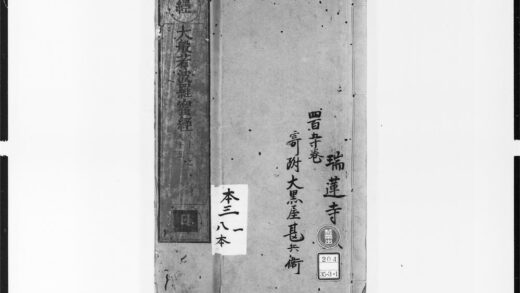 瑞蓮寺
四百五十卷
寄附大黒屋甚兵衛
204
35-3-1
經 大般若波羅蜜經
本三一
八本